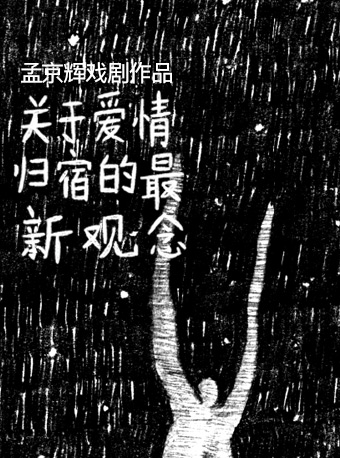 孟京辉戏剧作品
关于爱情
归宿的最
新观念